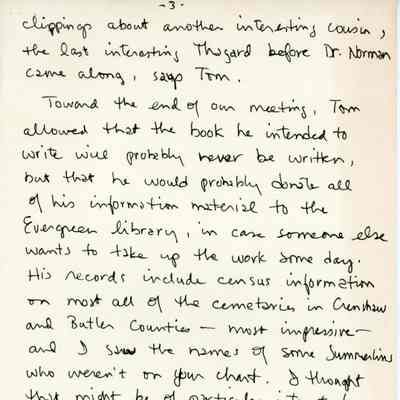 -3-
clippings about another interesting cousin,
the last interesting Thagard before Dr. Norman
came along, says Tom.
Toward the end of our meeting, Tom
allowed that the book he intended to
write will probably never be written,
but that he would probably donate all
of his information material to the
Evergreen library, in case someone else
wants to take up the work some day.
His records include census information
on most all of the cemeteries in Crenshaw
and Butler Counties — most impressive —
and I saw the names of some Summerlins
who weren't on your chart. I thought
this might be of particular